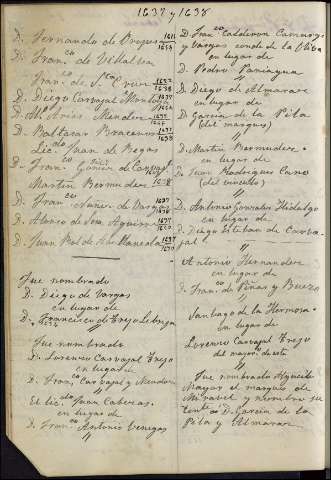 1637 y 1638
D.n Fernando de Orozco 1651 1654
D. Fran.co de Villalva
Fran.co de S.ta Cruz 1652 1638
D. Diego Carvajal Mendoza 1638 1664
D. M. Arias Mender 1655
D. Baltasar Bracamon 1657 1658
Lic.do Juan de Vegas
D. Fran.co Gómez de Carvajal
Martin Bermudez 1658
D. Fran.co Nuñez de Vargas 1677 1678
D. Alonso de Sosa Aguirre 1677
D. Juan Paul de Ara
Fue nombrado
D. Diego de Vargas
en lugar de
D. Francisco de Trejo Lobrega
Fue nombrado
D. Lorenzo Carvajal Trejo
en lugar de
D. Fran.co Carvajal y Mendoza
El lic.do Juan Caberas
en lugar de
D. Fran.co Antonio Venegas
D. Fran.co Calderon Camargo
y Vargas conde de la Oliva
en lugar de
D. Pedro Paniagua
"
D. Diego de Almaraz
en lugar de
D. Garcia de la Pila
(del marques)
"
D. Martin Bermudez
en lugar de
D. Juan Rodriguez Cano
(del vinculo)
"
D. Antonio Gonzalez Hidalgo
en lugar de
D. Diego Esteban de Carva-
jal
"
Antonio Hernandez
en lugar de
D. Fran.co de Piñas y Bueza
"
Santiago de la Hermosa
en lugar de
Lorenzo Carvajal Trejo
del mayor de este
"
Fue nombrado Alguacil
Mayor el marques de
Miravel y nombro su
tente á D. Garcia de la
Pila y Almaraz